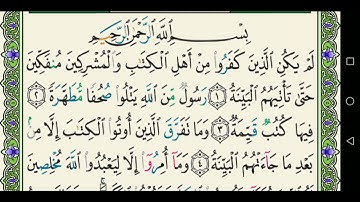 بِسْمِ ٱللَّهِ ٱلرَّحْمَٰنِ ٱلرَّحِيمِ
لَمْ يَكُنِ ٱلَّذِينَ كَفَرُوا۟ مِنْ أَهْلِ ٱلْكِتَٰبِ وَٱلْمُشْرِكِينَ مُنفَكِّينَ
حَتَّىٰ تَأْتِيَهُمُ ٱلْبَيِّنَةُ ١ رَسُولٌ مِّنَ ٱللَّهِ يَتْلُوا۟ صُحُفًا مُّطَهَّرَةً ٢
فِيهَا كُتُبٌ قَيِّمَةٌ ٣ وَمَا تَفَرَّقَ ٱلَّذِينَ أُوتُوا۟ ٱلْكِتَٰبَ إِلَّا مِنۢ
بَعْدِ مَا جَآءَتْهُمُ ٱلْبَيِّنَةُ ٤ وَمَآ أُمِرُوٓا۟ إِلَّا لِيَعْبُدُوا۟ ٱللَّهَ مُخْلِصِينَ